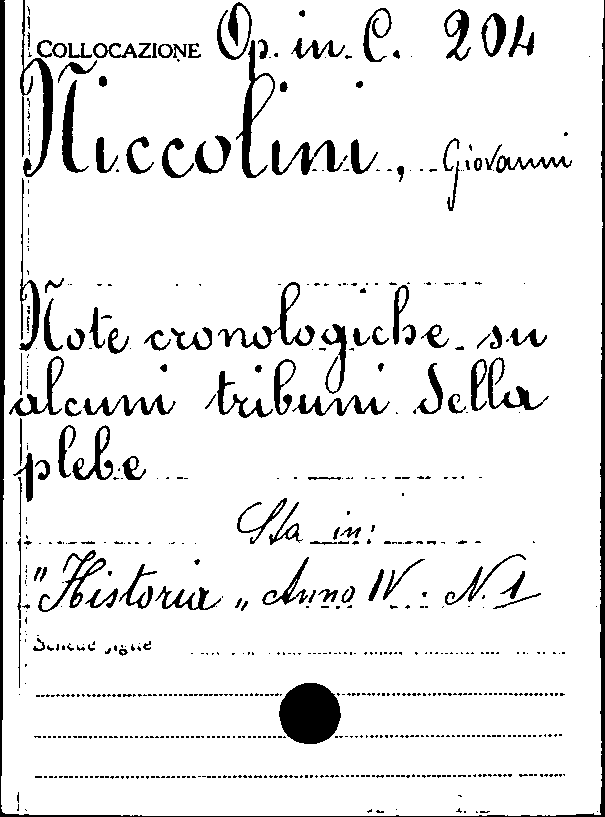 COLLOCAZIONE Op. in C. 204
Niccolini, Giovanni
Note cronologiche su
alcuni tribuni della
plebe
Sta in:
"Historia„ Anno IV. N. 1